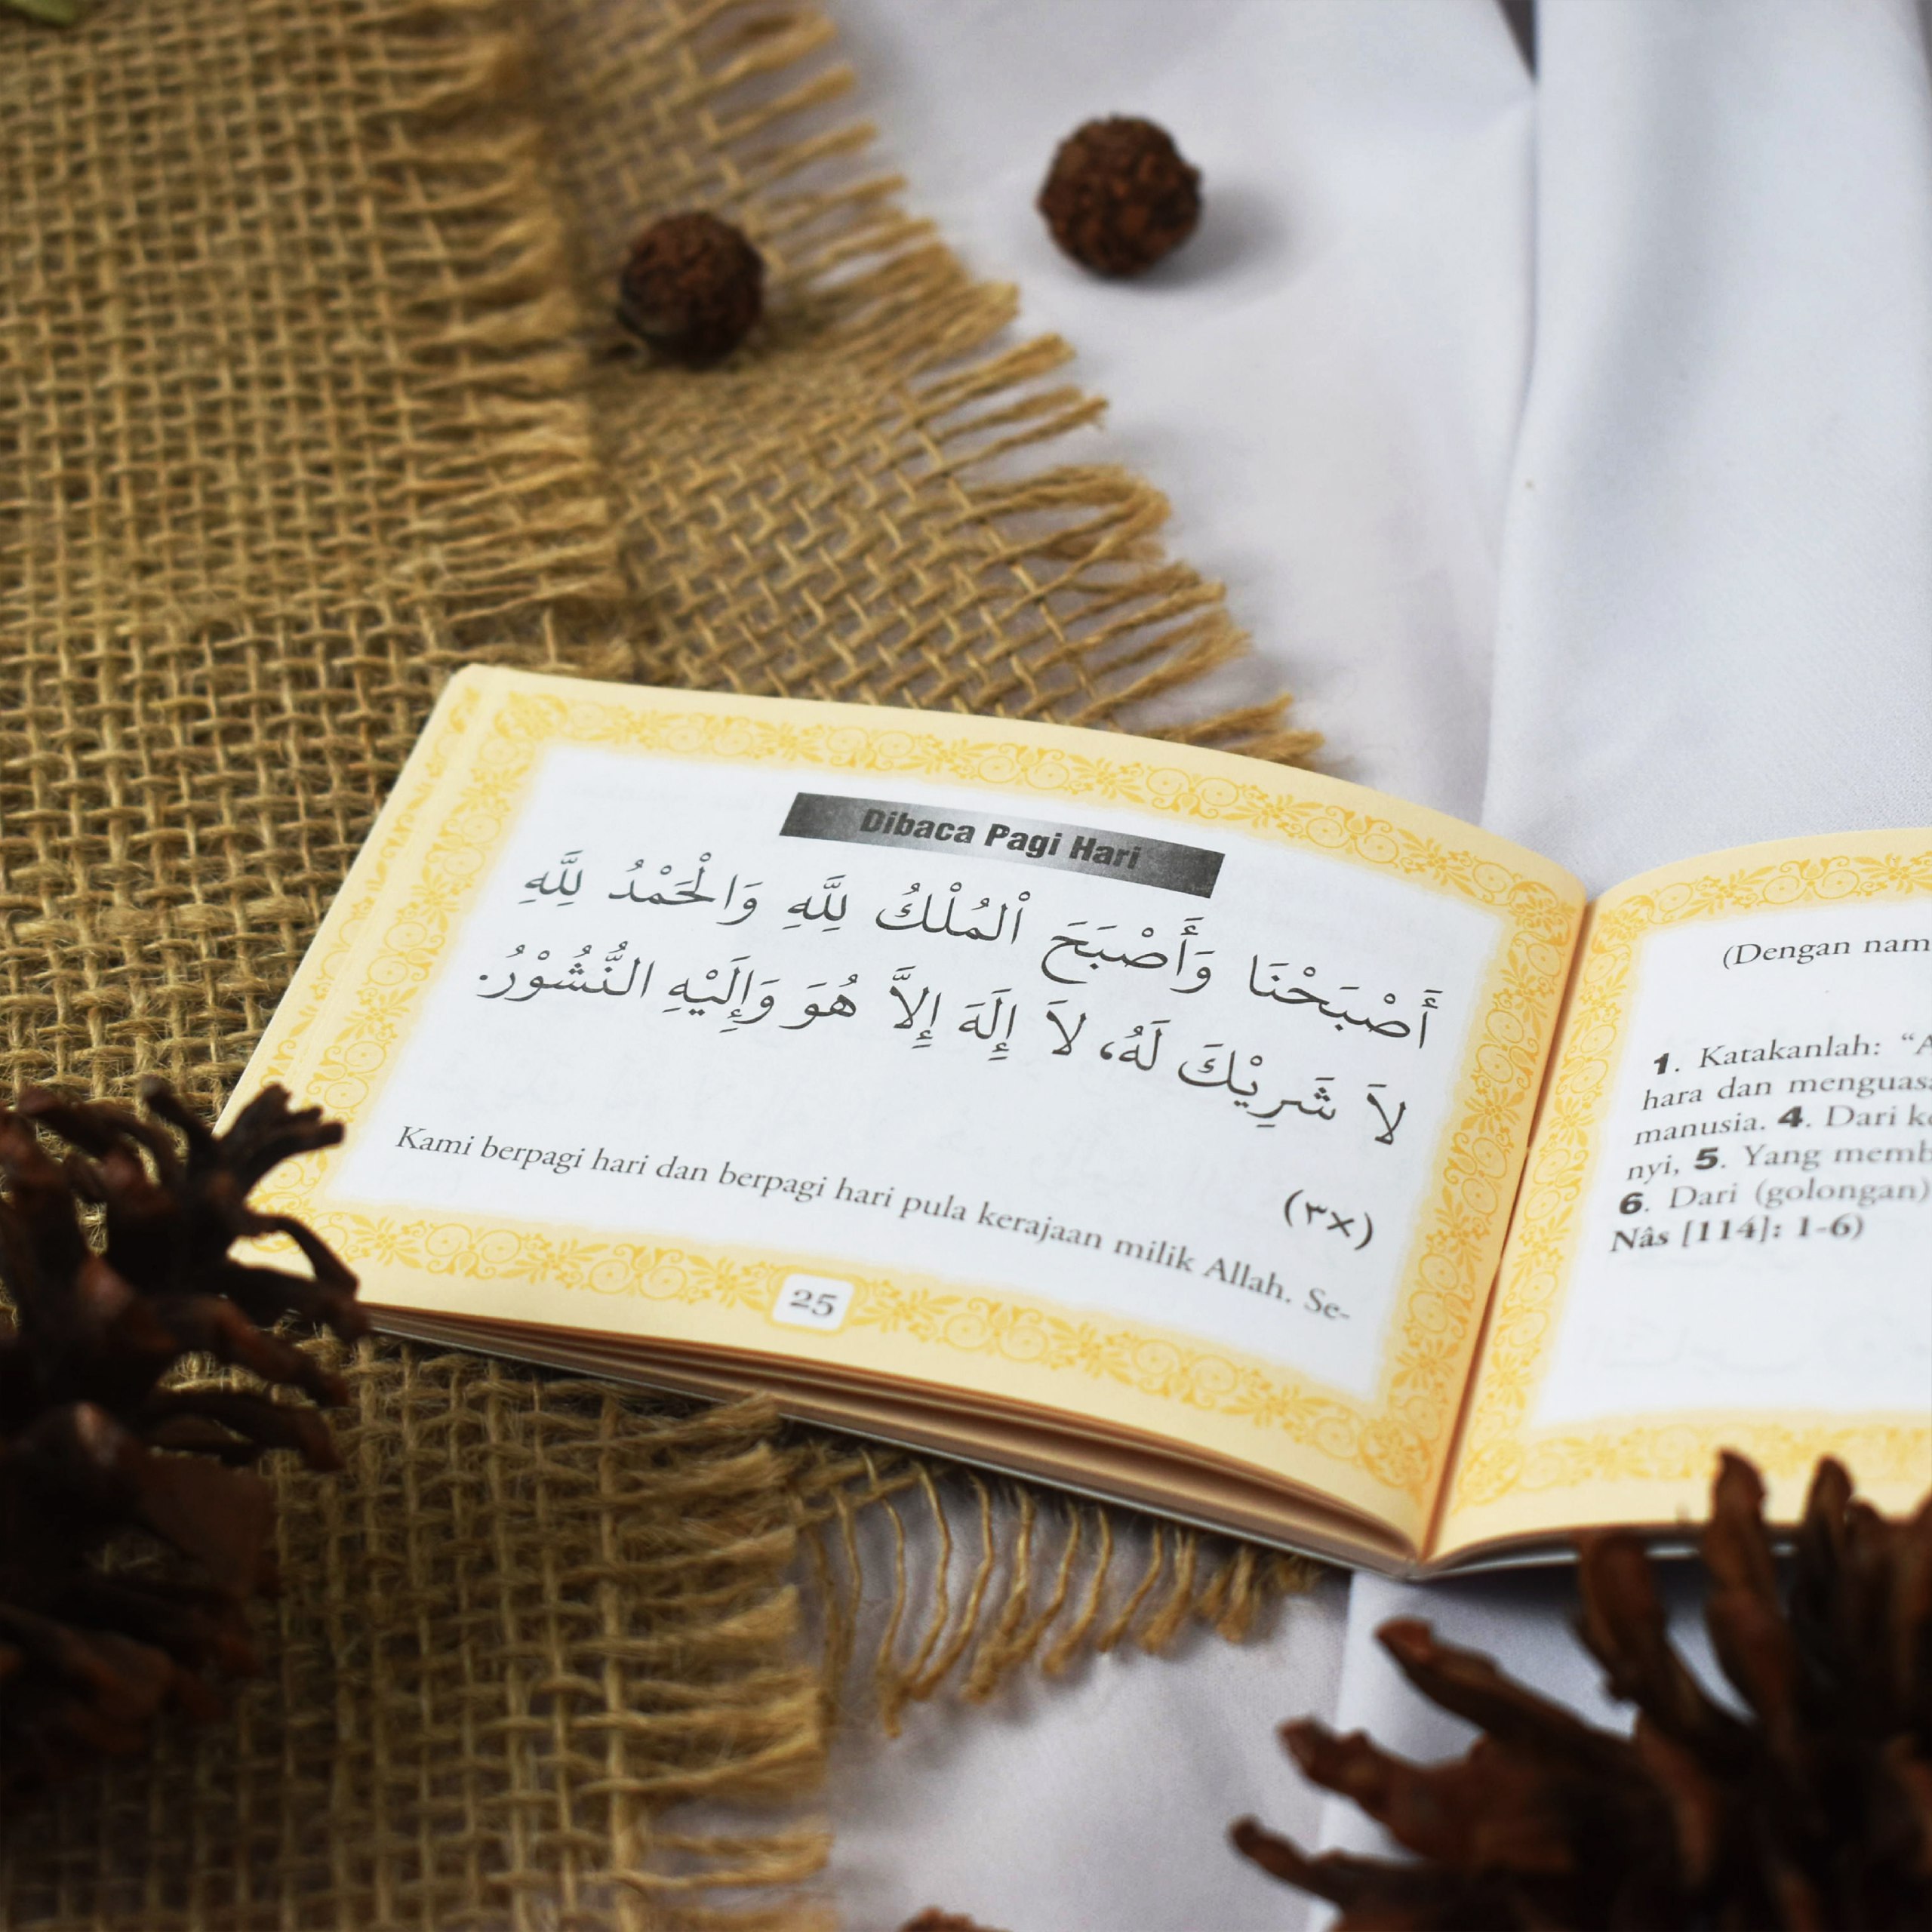 Dibaca Pagi Hari
أَصْبَحْنَا وَأَصْبَحَ اْلمُلْكُ لِلَّهِ وَالْحَمْدُ لِلَّهِ
لاَ شَرِيْكَ لَهُ، لاَ إِلَهَ إِلاَّ هُوَ وَإِلَيْهِ النُّشُوْرُ.
(٣×)
Kami berpagi hari dan berpagi hari pula kerajaan milik Allah. Se-
25
(Dengan nam
1. Katakanlah: “A
hara dan menguasa
manusia. 4. Dari ke
nyi, 5. Yang memb
6. Dari (golongan)
Nâs [114]: 1-6)